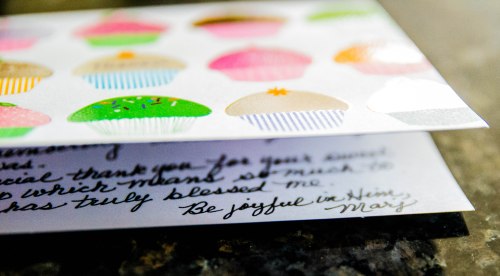 as.
cial thank you for your sweet
which means so much to
has truly blessed me.
Be joyful in Him,
Mary